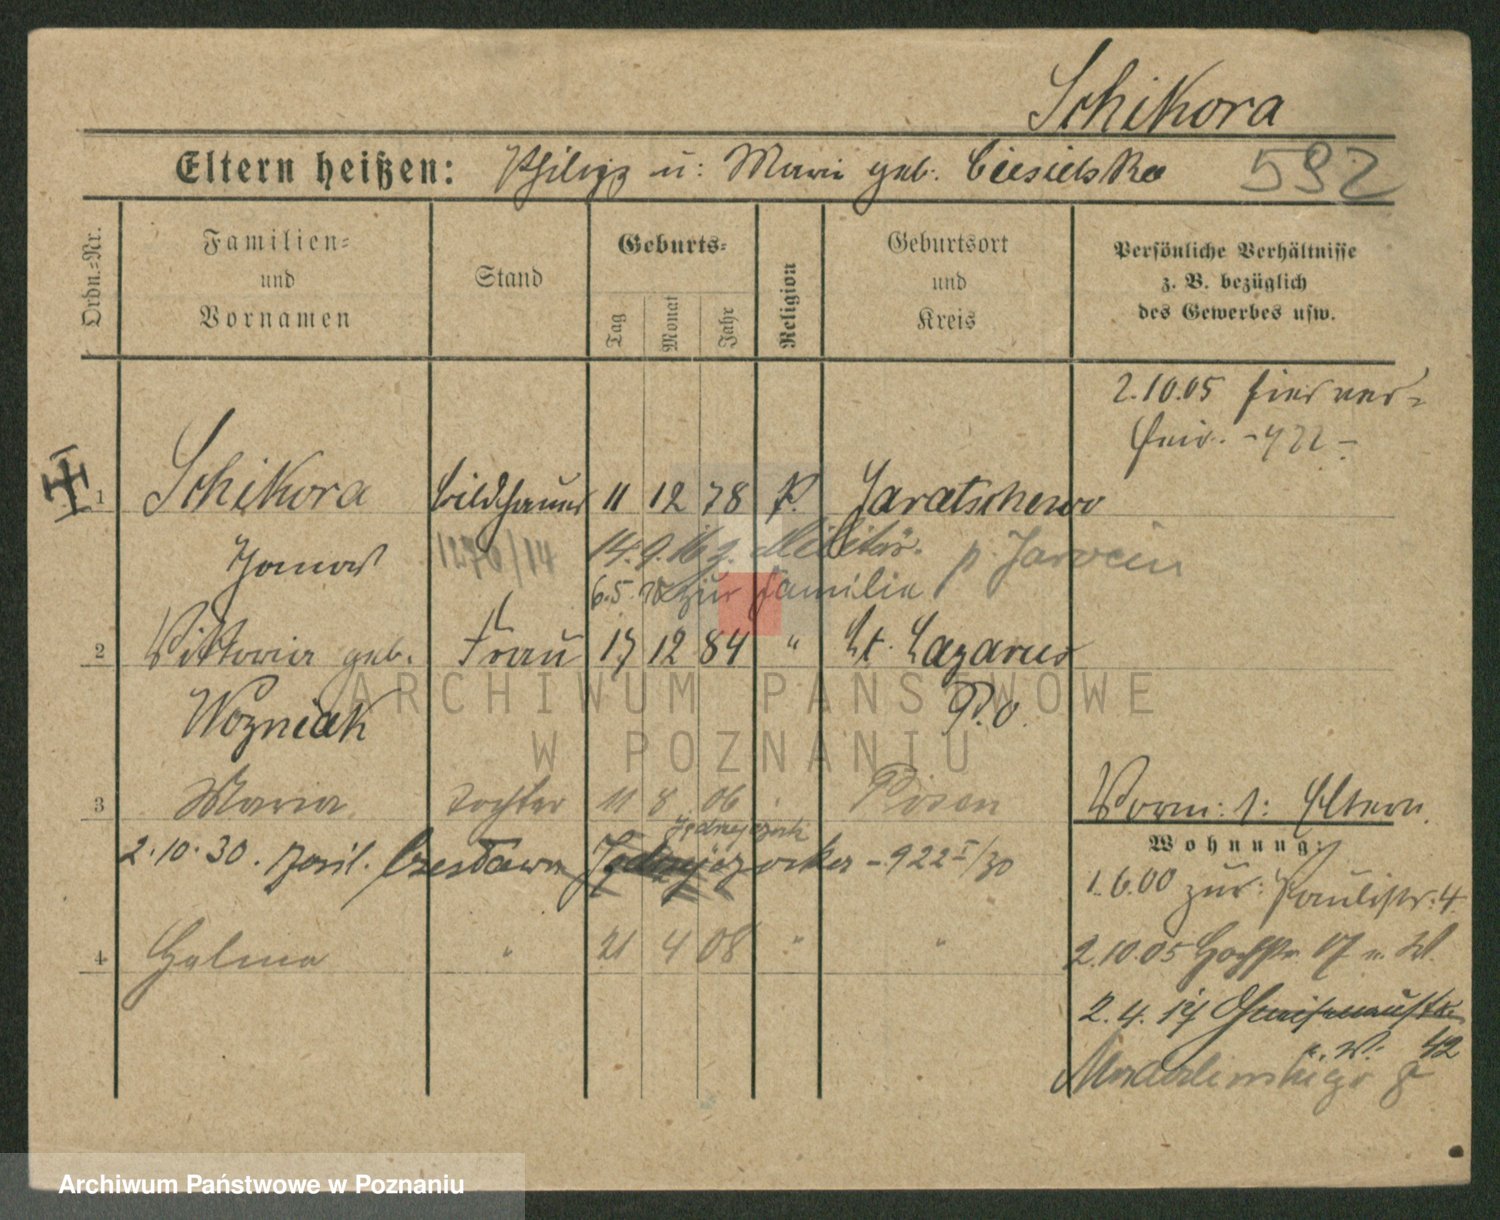 Schikora
Eltern heißen: Philipp u: Marie geb. Ciesielska 592
Ordn.=Nr.
Familien=
und
Vornamen
Stand
Geburts=
Tag
Monat
Jahr
Religion
Geburtsort
und
Kreis
Persönliche Verhältnisse
z. B. bezüglich
des Gewerbes usw.
2.10.05 hier ver=
heir.
1 Schikora Bildhauer 11 12 78 K. Jaratschewo
1276/14 14.9.16 z. Militär. p. Jarocin
6.5. zur Familie
2 Viktoria geb. Frau 17 12 84 " St. Lazarus
Wozniak P.O.
3 Maria Tochter 11 8 06 Posen
Vorm: s: Eltern.
Jędrzejczak
2.10.30. Czesława -922 I/30
Wohnung:
1.6.00 zur: Paulistr. 4.
4 Halina " 21 4 08 " "
2.10.05 Hochstr. 17 n. W.
2.4.17 Gneisenaustr.
n. W. 42
8
ARCHIWUM PAŃSTWOWE
W POZNANIU
Archiwum Państwowe w Poznaniu